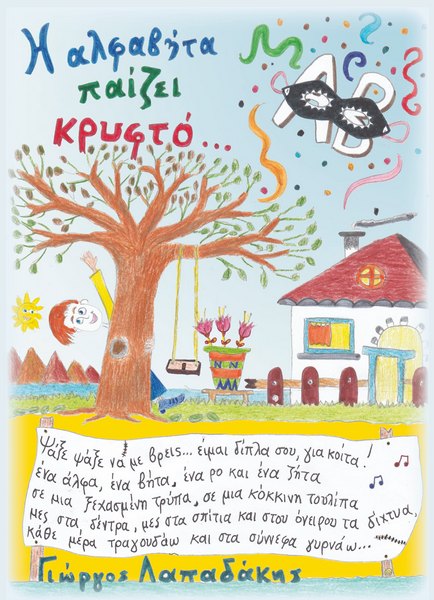 Η αλφαβήτα
παίζει
κρυφτό...
ΑΒ
Ψάξε ψάξε να με βρεις... είμαι δίπλα σου, για κοίτα!
ένα άλφα, ένα βήτα, ένα ρο και ένα ζήτα
σε μια ξεχασμένη τρύπα, σε μια κόκκινη τουλίπα
μες στα δέντρα, μες στα σπίτια και στου όνειρου τα δίχτυα,
κάθε μέρα τραγουδάω και στα σύννεφα γυρνάω...
Γιώργος Λαπαδάκης